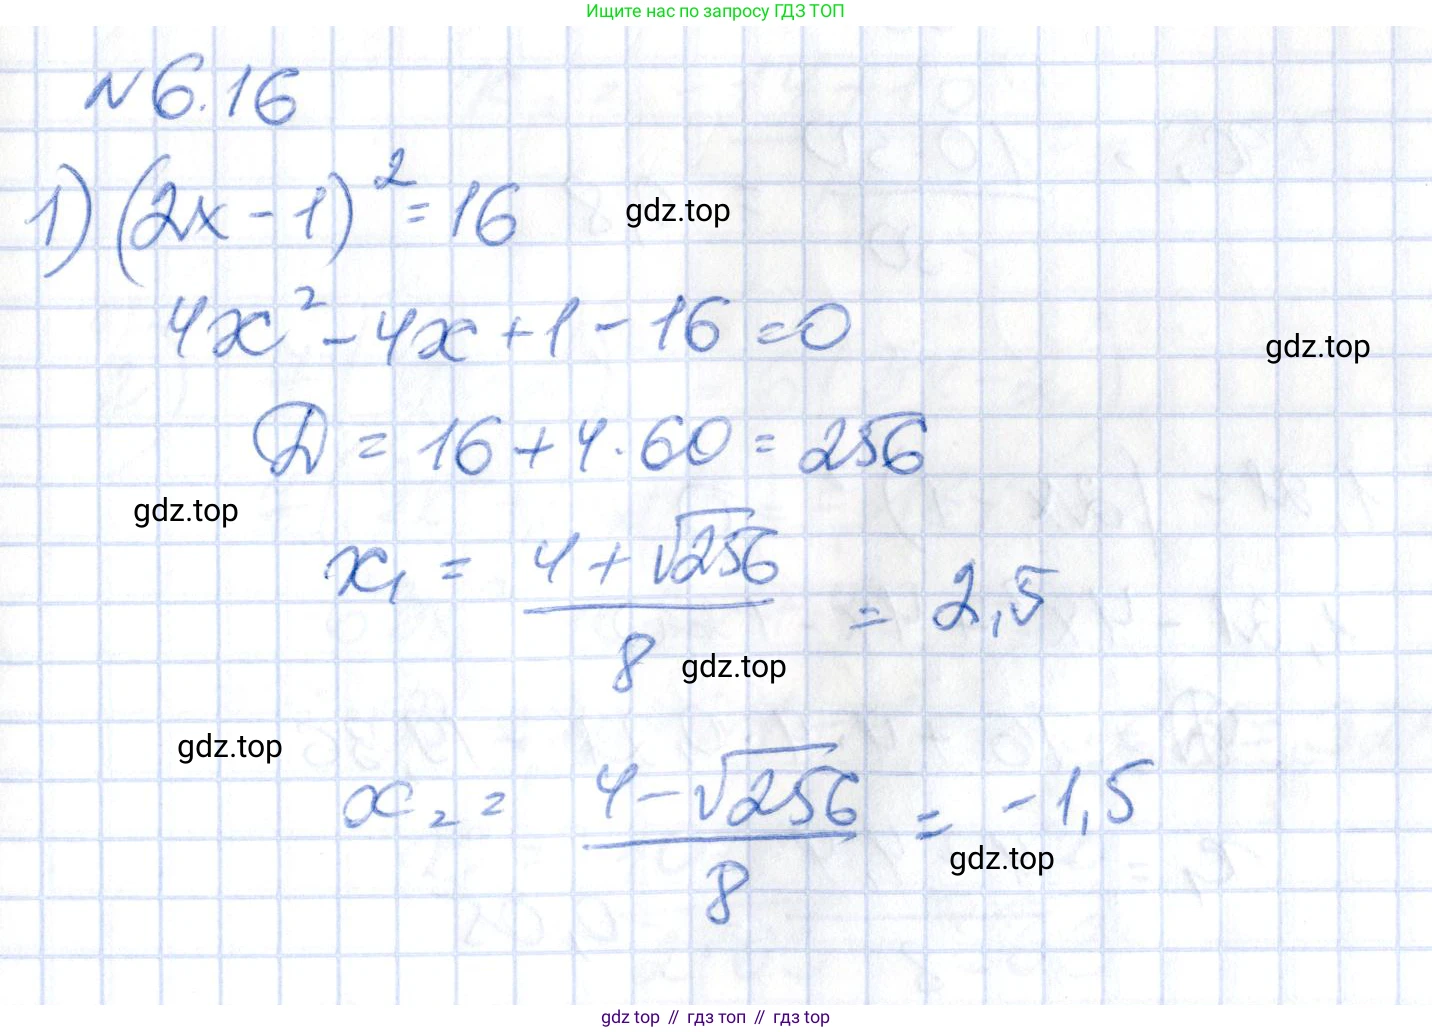 Ищите нас по запросу ГДЗ ТОП
№ 6.16
1) (2x - 1)² = 16
gdz.top
4x² - 4x + 1 - 16 = 0
gdz.top
D = 16 + 4·60 = 256
gdz.top
x₁ = (4 + √256)/8 = 2,5
gdz.top
gdz.top
x₂ = (4 - √256)/8 = -1,5
gdz.top
gdz top // гдз топ // гдз top